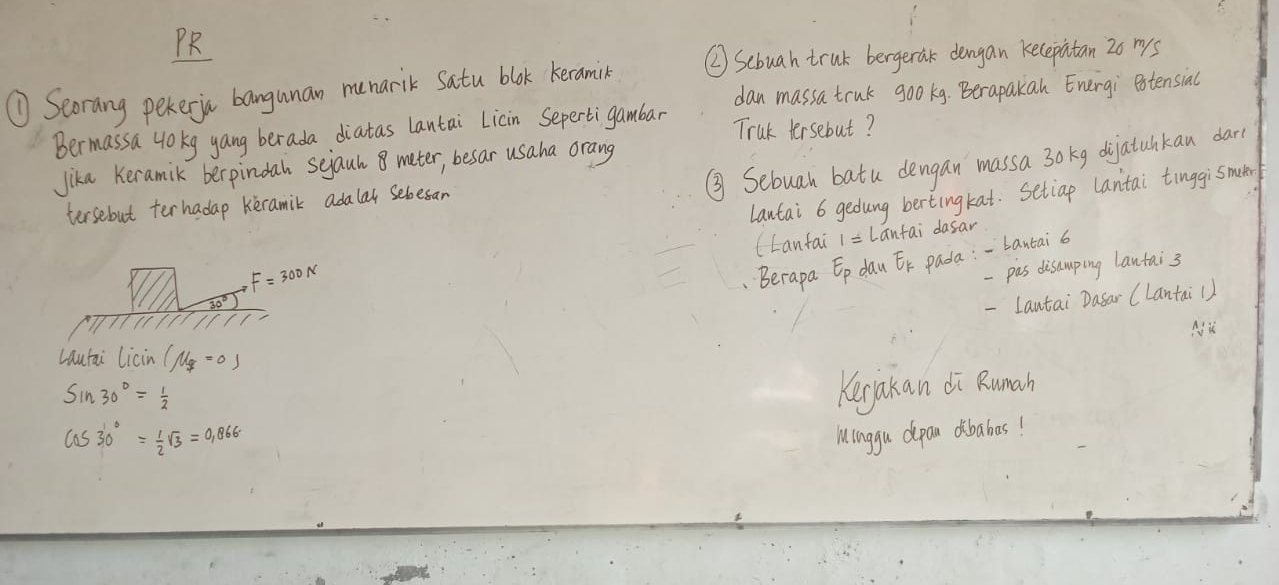 PR
① Seorang pekerja bangunan menarik satu blok keramik
Bermassa 40 kg yang berada diatas lantai Licin Seperti gambar
Jika Keramik berpindah sejauh 8 meter, besar usaha orang
tersebut terhadap keramik adalah sebesar
F = 300 N
30°
Lantai licin (μ = 0)
Sin 30° = 1/2
Cos 30° = 1/2 √3 = 0,866
② Sebuah truk bergerak dengan kecepatan 20 m/s
dan massa truk 900 kg. Berapakah Energi Potensial
Truk tersebut ?
③ Sebuah batu dengan massa 30 kg dijatuhkan dari
Lantai 6 gedung bertingkat. Setiap lantai tinggi 5 meter
(Lantai 1 = Lantai dasar
Berapa Ep dan Ek pada : - Lantai 6
- pas disamping Lantai 3
- Lantai Dasar (Lantai 1)
Kerjakan di Rumah
Minggu depan dibahas !